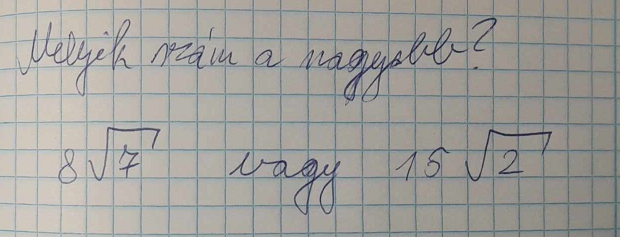 Melyik szám a nagyobb?
8√7 vagy 15√2